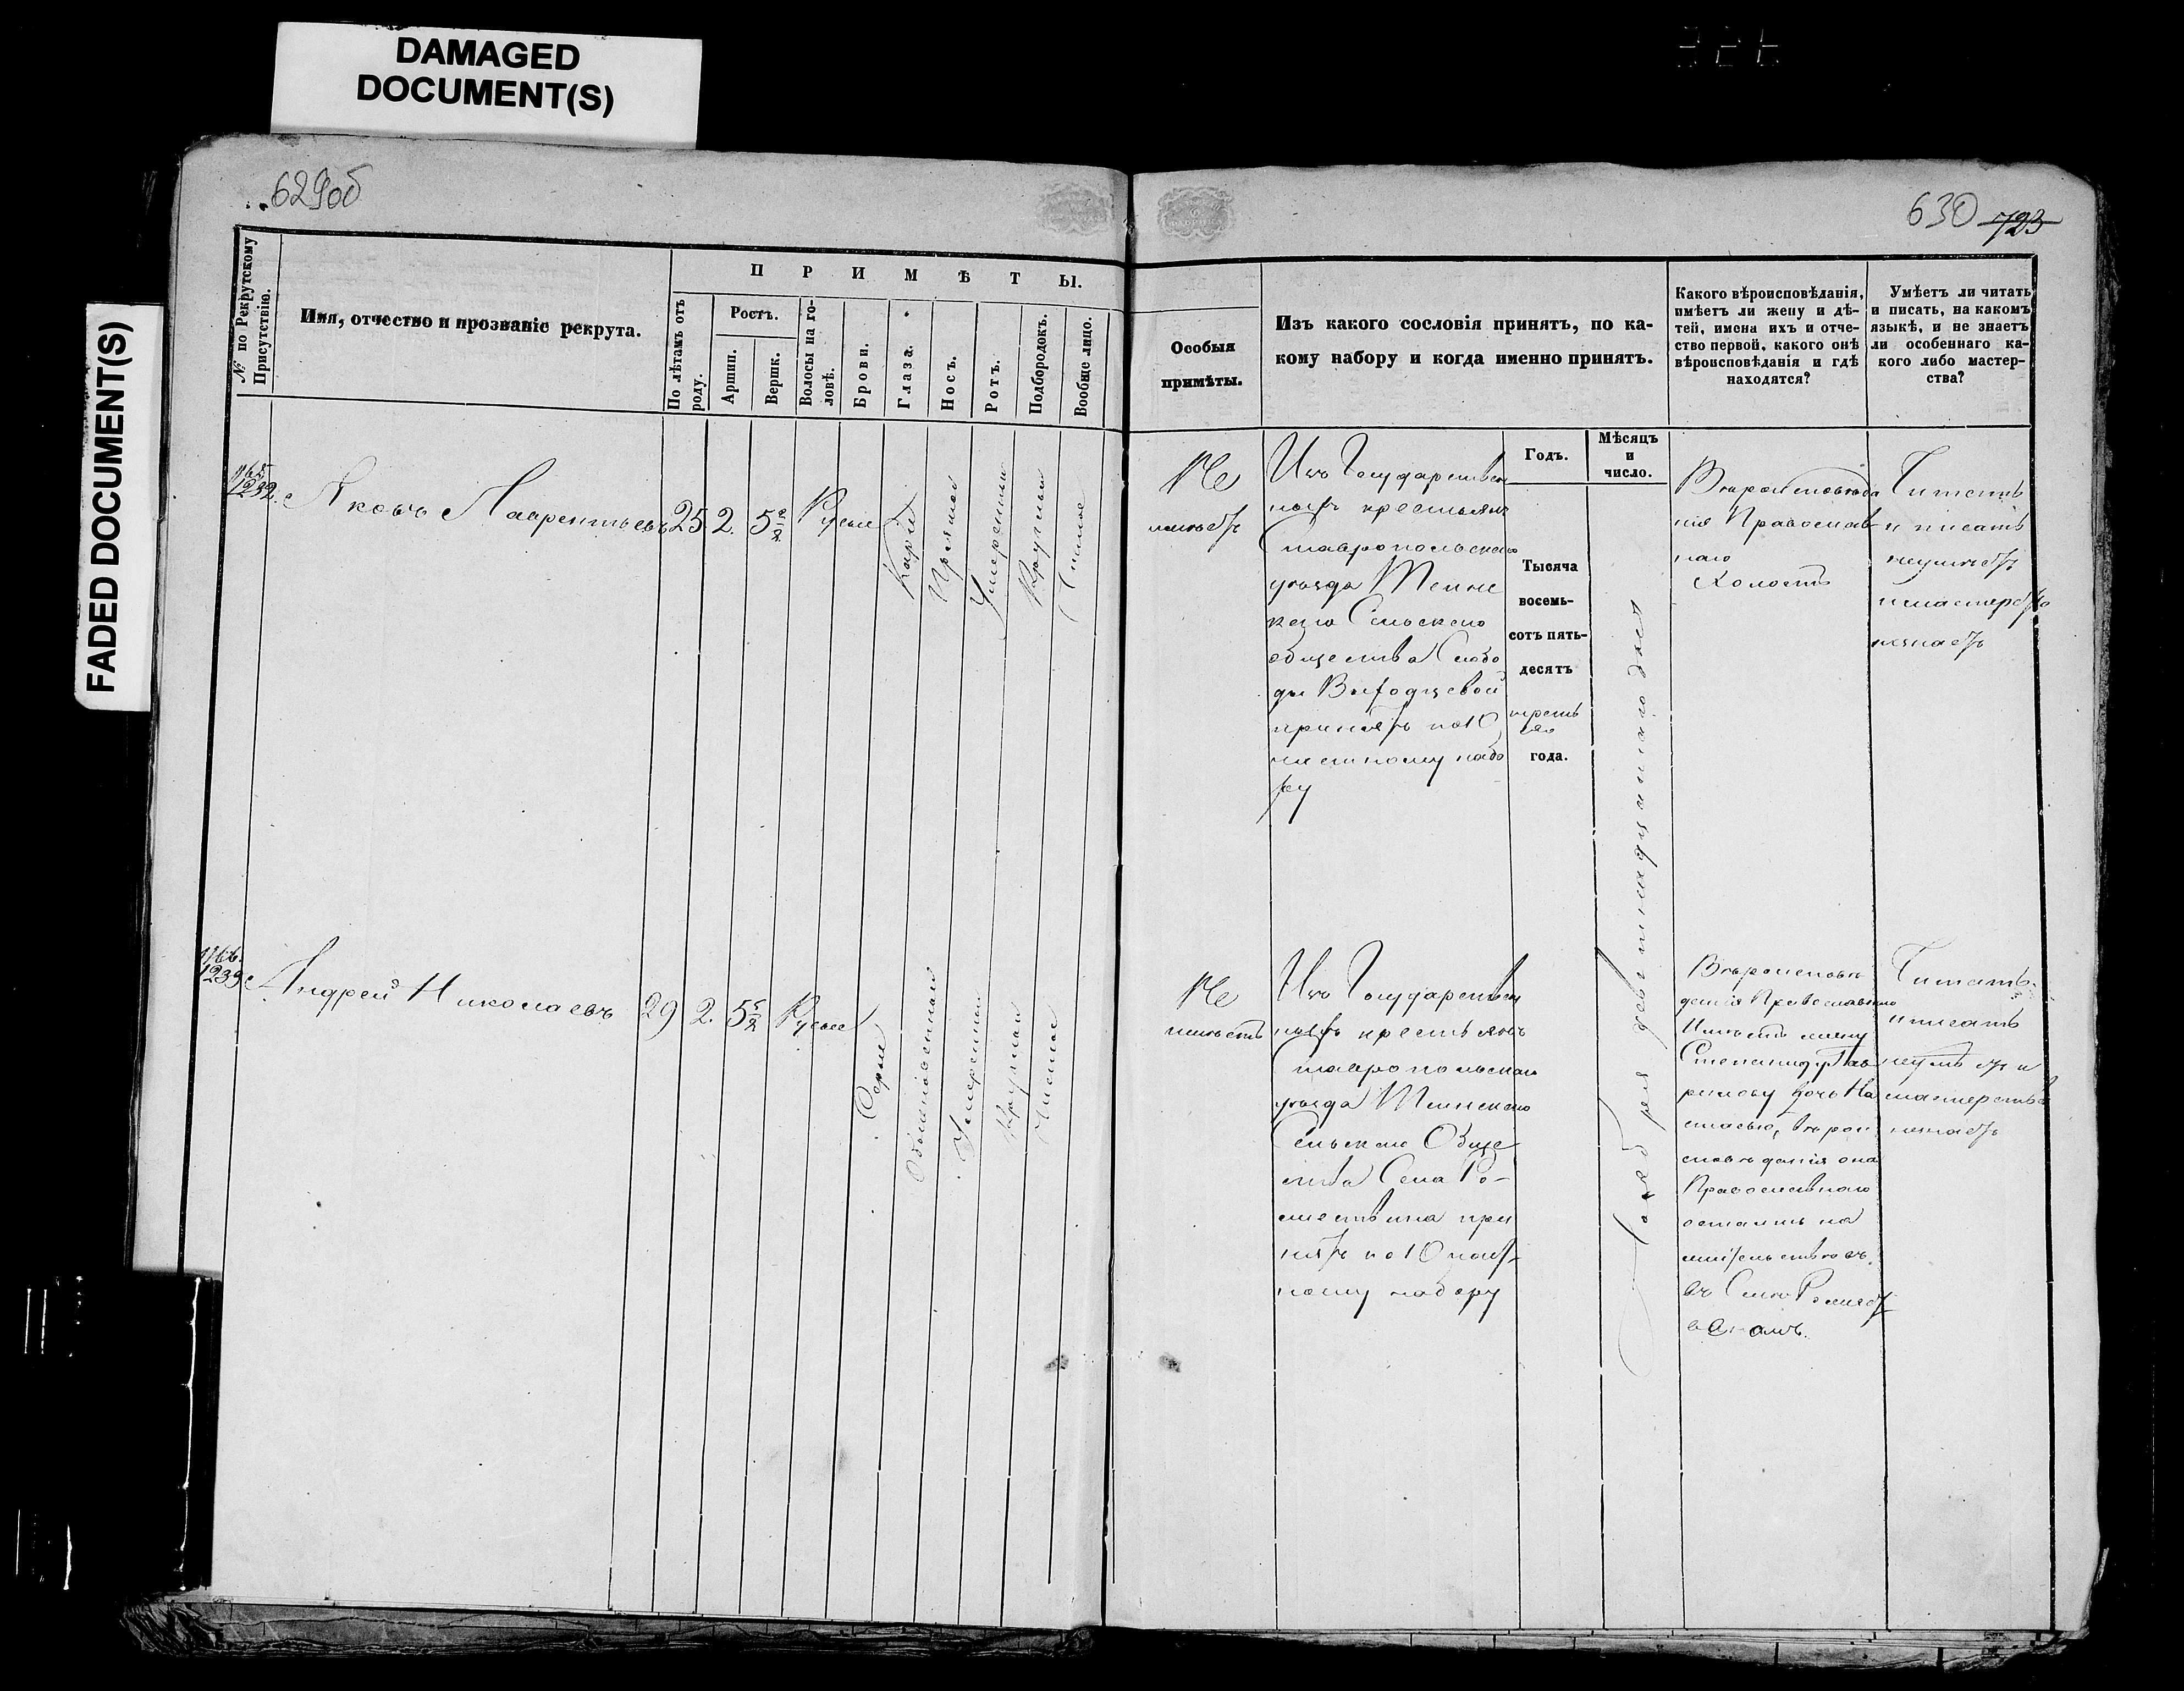 DAMAGED
DOCUMENT(S)
FADED DOCUMENT(S)
629об
630 723
№ по Рекрутскому
Присутствію.
Имя, отчество и прозваніе рекрута.
ПРИМѢТЫ.
По лѣтамъ отъ
роду.
Ростъ.
Аршин.
Вершк.
Волосы на го-
ловѣ.
Брови.
Глаза.
Носъ.
Ротъ.
Подбородокъ.
Вообще лицо.
Особыя
примѣты.
Изъ какого сословія принятъ, по ка-
кому набору и когда именно принятъ.
Какого вѣроисповѣданія,
имѣетъ ли жену и дѣ-
тей, имена ихъ и отче-
ство первой, какого онѣ
вѣроисповѣданія и гдѣ
находятся?
Умѣетъ ли читать
и писать, на какомъ
языкѣ, и не знаетъ
ли особеннаго ка-
кого либо мастер-
ства?
Годъ.
Мѣсяцъ
и
число.
1232.
Яковъ Лаврентьевъ
25
2.
5
Русые
Каріе
Прямой
Умеренный
Круглый
Чистое
Не
имѣетъ
Изъ Государствен
ныхъ крестьянъ
Ставропольскаго
уѣзда
Сельскаго
общества Слобо
ды Выходцевой
принятъ по 10
набо
ру
Тысяча
восемь-
сотъ пять-
десятъ
года.
девятнадцатаго дня
Вѣроисповѣда
нія Православ
наго
Холостъ
Читать
и писать
неумѣетъ
и мастерства
незнаетъ
1233
Андрей Николаевъ
29
2.
5
Русые
Серые
Обыкновенный
Умеренный
Круглый
Чистое
Не
имѣетъ
Изъ Государствен
ныхъ крестьянъ
Ставропольскаго
уѣзда
Сельскаго Обще
ства Села Ро-
при
нятъ по 10
ному набору
Вѣроисповѣ
данія Православнаго
Имѣетъ жену
Степаниду Гав
рилову дочь На
стасью, вѣрои
сповѣданія она
Православнаго
остались на
жительствѣ въ
въ Селѣ
Читать
и писать
неумѣетъ и
мастерства
незнаетъ